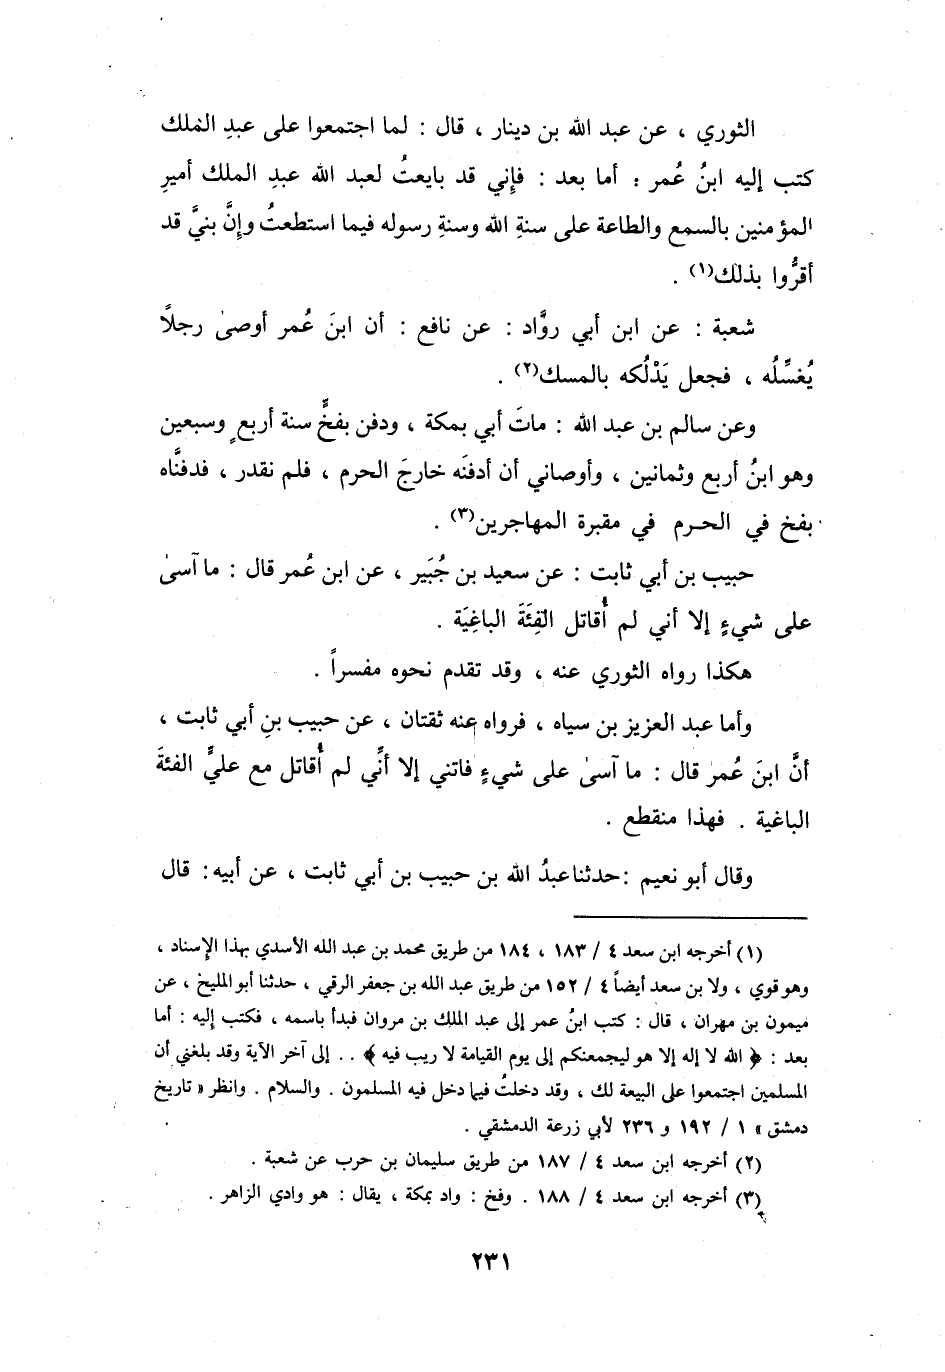 الثوري ، عن عبد الله بن دينار ، قال : لما اجتمعوا على عبدِ الملك
كتب إليه ابنُ عُمر : أما بعد : فإِني قد بايعتُ لعبد الله عبدِ الملك أميرِ
المؤمنين بالسمع والطاعة على سنةِ الله وسنةِ رسوله فيما استطعتُ وإنَّ بنيَّ قد
أقرُّوا بذلك(١) .
شعبة : عن ابن أبي روَّاد : عن نافع : أن ابنَ عُمر أوصىٰ رجلاً
يُغسِّلُه ، فجعل يَدْلُكه بالمسك(٢) .
وعن سالم بن عبد الله : ماتَ أبي بمكة ، ودفن بفخٍّ سنة أربعٍ وسبعين
وهو ابنُ أربع وثمانين ، وأوصاني أن أدفنَه خارجَ الحرم ، فلم نقدر ، فدفنَّاه
بفخ في الحرم في مقبرة المهاجرين(٣) .
حبيب بن أبي ثابت : عن سعيد بن جُبَير ، عن ابن عُمر قال : ما آسىٰ
على شيءٍ إلا أني لم أُقاتل الفِئَةَ الباغِيَة .
هكذا رواه الثوري عنه ، وقد تقدم نحوه مفسراً .
وأما عبد العزيز بن سياه ، فرواه عنه ثقتان ، عن حبيب بنِ أبي ثابت ،
أنَّ ابنَ عُمر قال : ما آسىٰ على شيءٍ فاتني إلا أنِّي لم أُقاتل مع عليٍّ الفئةَ
الباغية . فهذا منقطع .
وقال أبو نعيم : حدثنا عبدُ الله بن حبيب بن أبي ثابت ، عن أبيه : قال
(١) أخرجه ابن سعد ٤ / ١٨٣ ، ١٨٤ من طريق محمد بن عبد الله الأسدي بهذا الإسناد ،
وهو قوي ، ولا بن سعد أيضاً ٤ / ١٥٢ من طريق عبد الله بن جعفر الرقي ، حدثنا أبو المليح ، عن
ميمون بن مهران ، قال : كتب ابنُ عمر إلى عبد الملك بن مروان فبدأ باسمه ، فكتب إليه : أما
بعد : ﴿ الله لا إله إلا هو ليجمعنكم إلى يوم القيامة لا ريب فيه ﴾ .. إلى آخر الآية وقد بلغني أن
المسلمين اجتمعوا على البيعة لك ، وقد دخلتُ فيما دخل فيه المسلمون . والسلام . وانظر « تاريخ
دمشق » ١ / ١٩٢ و ٢٣٦ لأبي زرعة الدمشقي .
(٢) أخرجه ابن سعد ٤ / ١٨٧ من طريق سليمان بن حرب عن شعبة .
(٣) أخرجه ابن سعد ٤ / ١٨٨ . وفخ : واد بمكة ، يقال : هو وادي الزاهر .
٢٣١